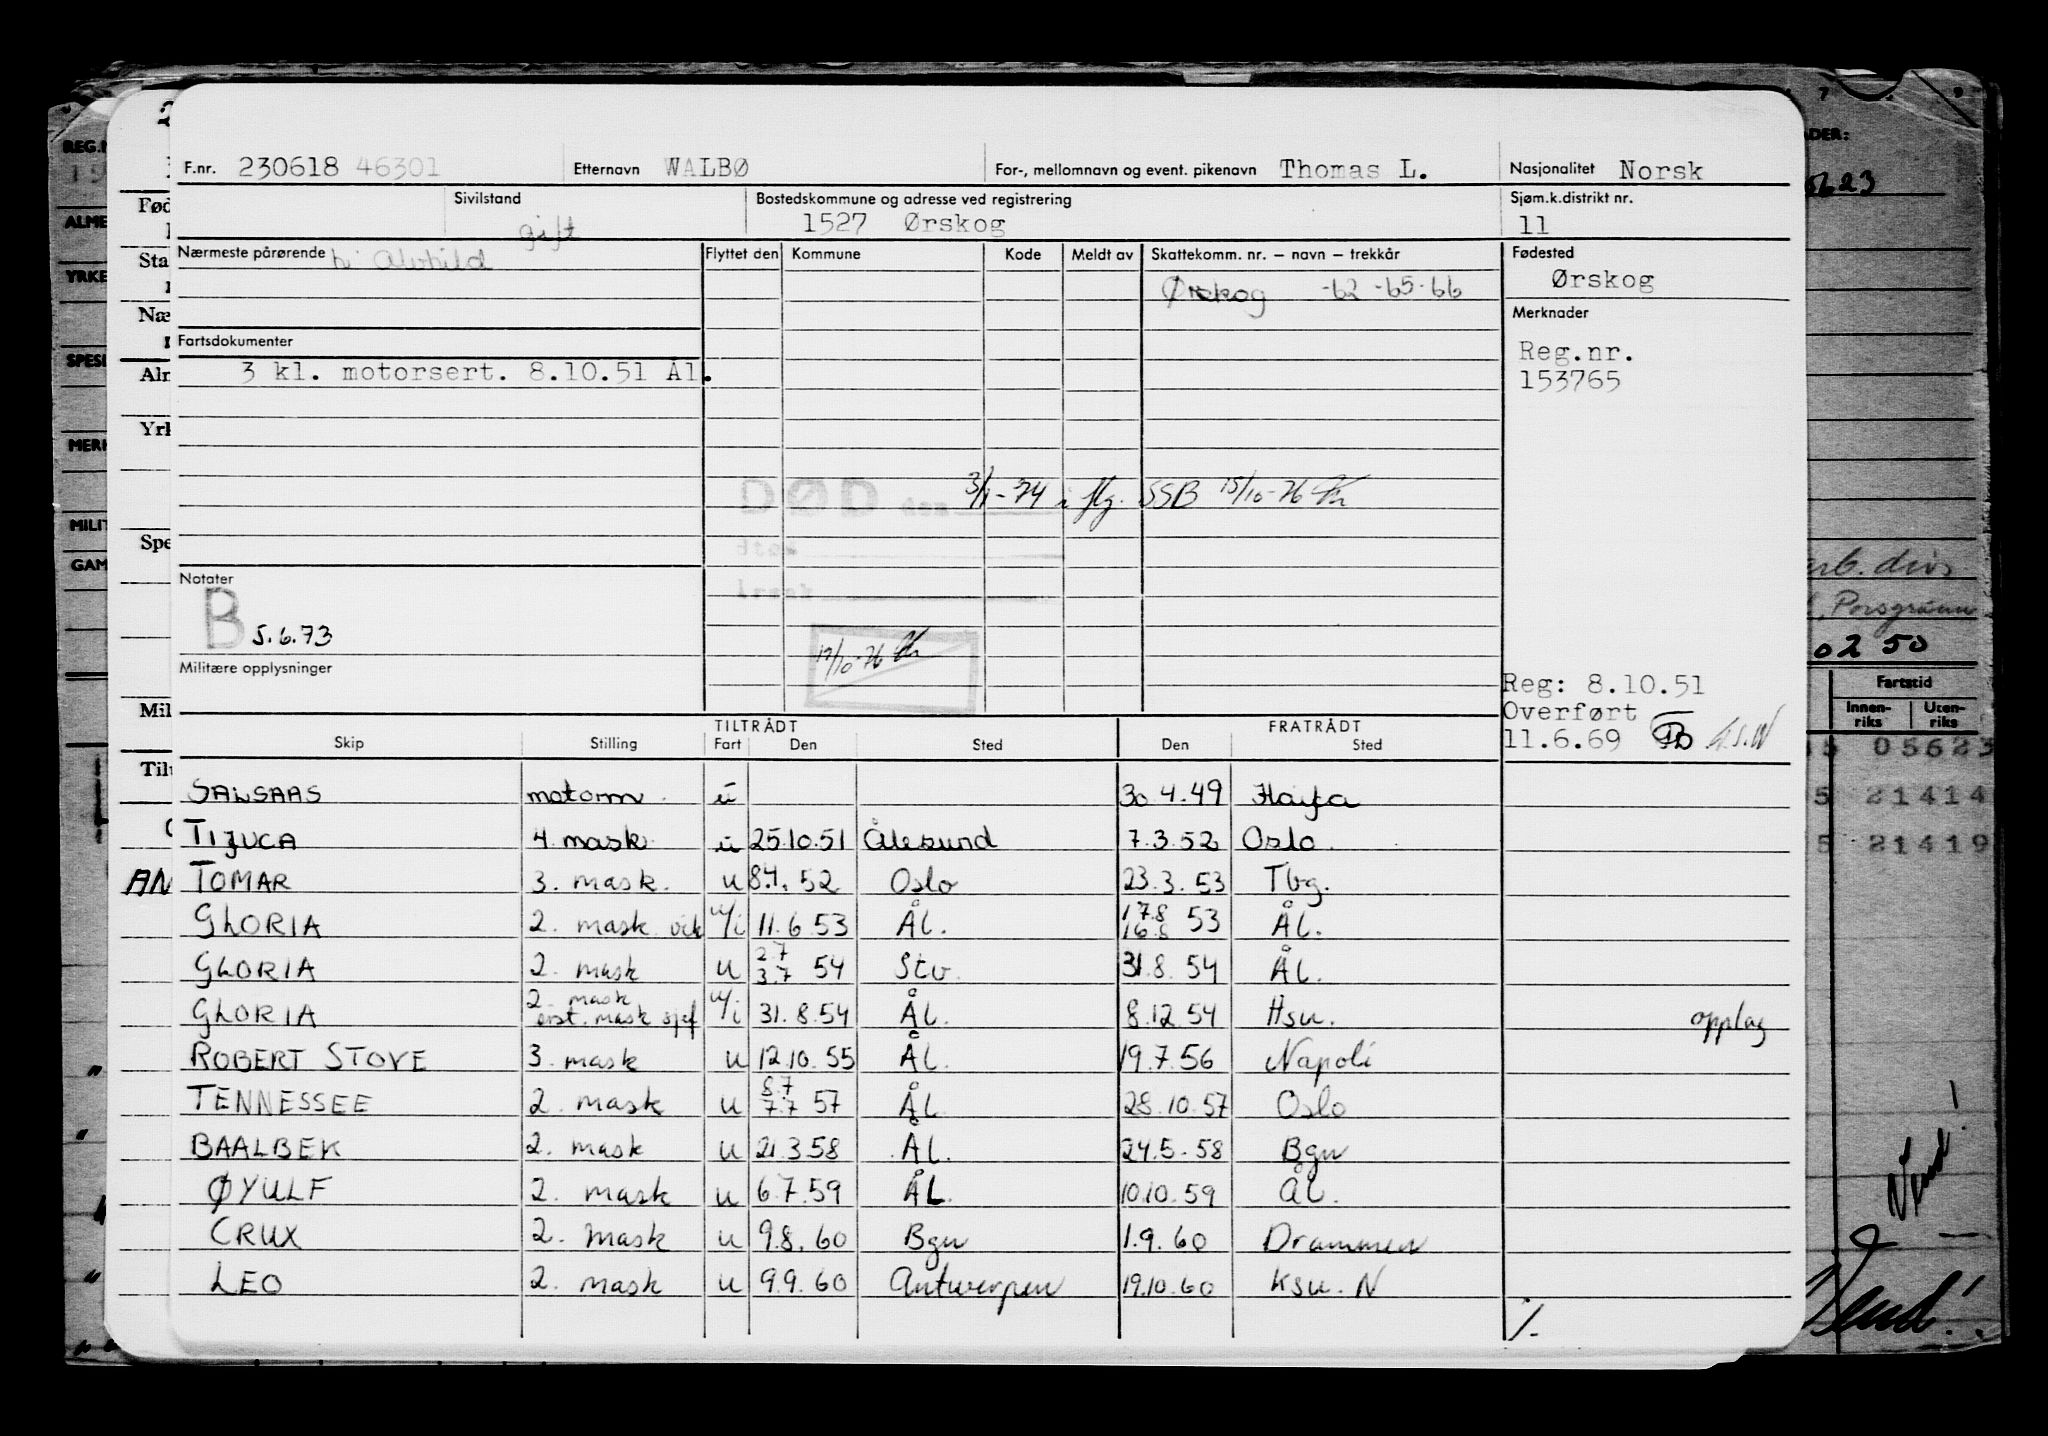 F.nr. 230618 46301 Etternavn WALBØ For-, mellomnavn og event. pikenavn Thomas L. Nasjonalitet Norsk
Sivilstand gift Bostedskommune og adresse ved registrering 1527 Ørskog Sjøm.k.distrikt nr. 11
Nærmeste pårørende Flyttet den Kommune Kode Meldt av Skattekomm. nr. – navn – trekkår Fødested
Ørskog -62 -65-66 Ørskog
Merknader
Fartsdokumenter Reg.nr.
3 kl. motorsert. 8.10.51 Ål. 153765
DØD den 3/1-74 i flg. SSB 15/10-76
Notater
B 5.6.73
Militære opplysninger
Reg: 8.10.51
Overført
11.6.69
TILTRÅDT FRATRÅDT
Skip Stilling Fart Den Sted Den Sted
SALSAAS motorm. u 30.4.49 Haifa
TIJUCA 4 mask. u 25.10.51 Ålesund 7.3.52 Oslo.
TOMAR 3. mask. u 8.4.52 Oslo 23.3.53 Tbg.
GLORIA 2. mask vik u/i 11.6.53 ÅL. 17.8 16.8 53 ÅL.
GLORIA 2. mask u 2.7 3.7 54 Stv. 31.8.54 ÅL.
GLORIA 2. mask erst. mask sjef u/i 31.8.54 ÅL. 8.12.54 Hsu. opplag
ROBERT STOVE 3. mask u 12.10.55 ÅL. 19.7.56 Napoli
TENNESSEE 2. mask u 8.7 7.7 57 ÅL 28.10.57 Oslo
BAALBEK 2. mask u 21.3.58 ÅL. 24.5.58 Bgn
ØYULF 2. mask u 6.7.59 ÅL. 10.10.59 ÅL.
CRUX 2. mask u 9.8.60 Bgn 1.9.60 Drammen
LEO 2. mask u 9.9.60 Antwerpen 19.10.60 Ksu. N
REG.N
ALME
YRKE
SPESI
MERK
MILIT
GAM
Fød
Sta
Næ
Aln
Yrk
Spe
Mil
Tilt
AN
Porsgrunn
02 50
Fartstid
Innen-riks Uten-riks
05623
21414
21419